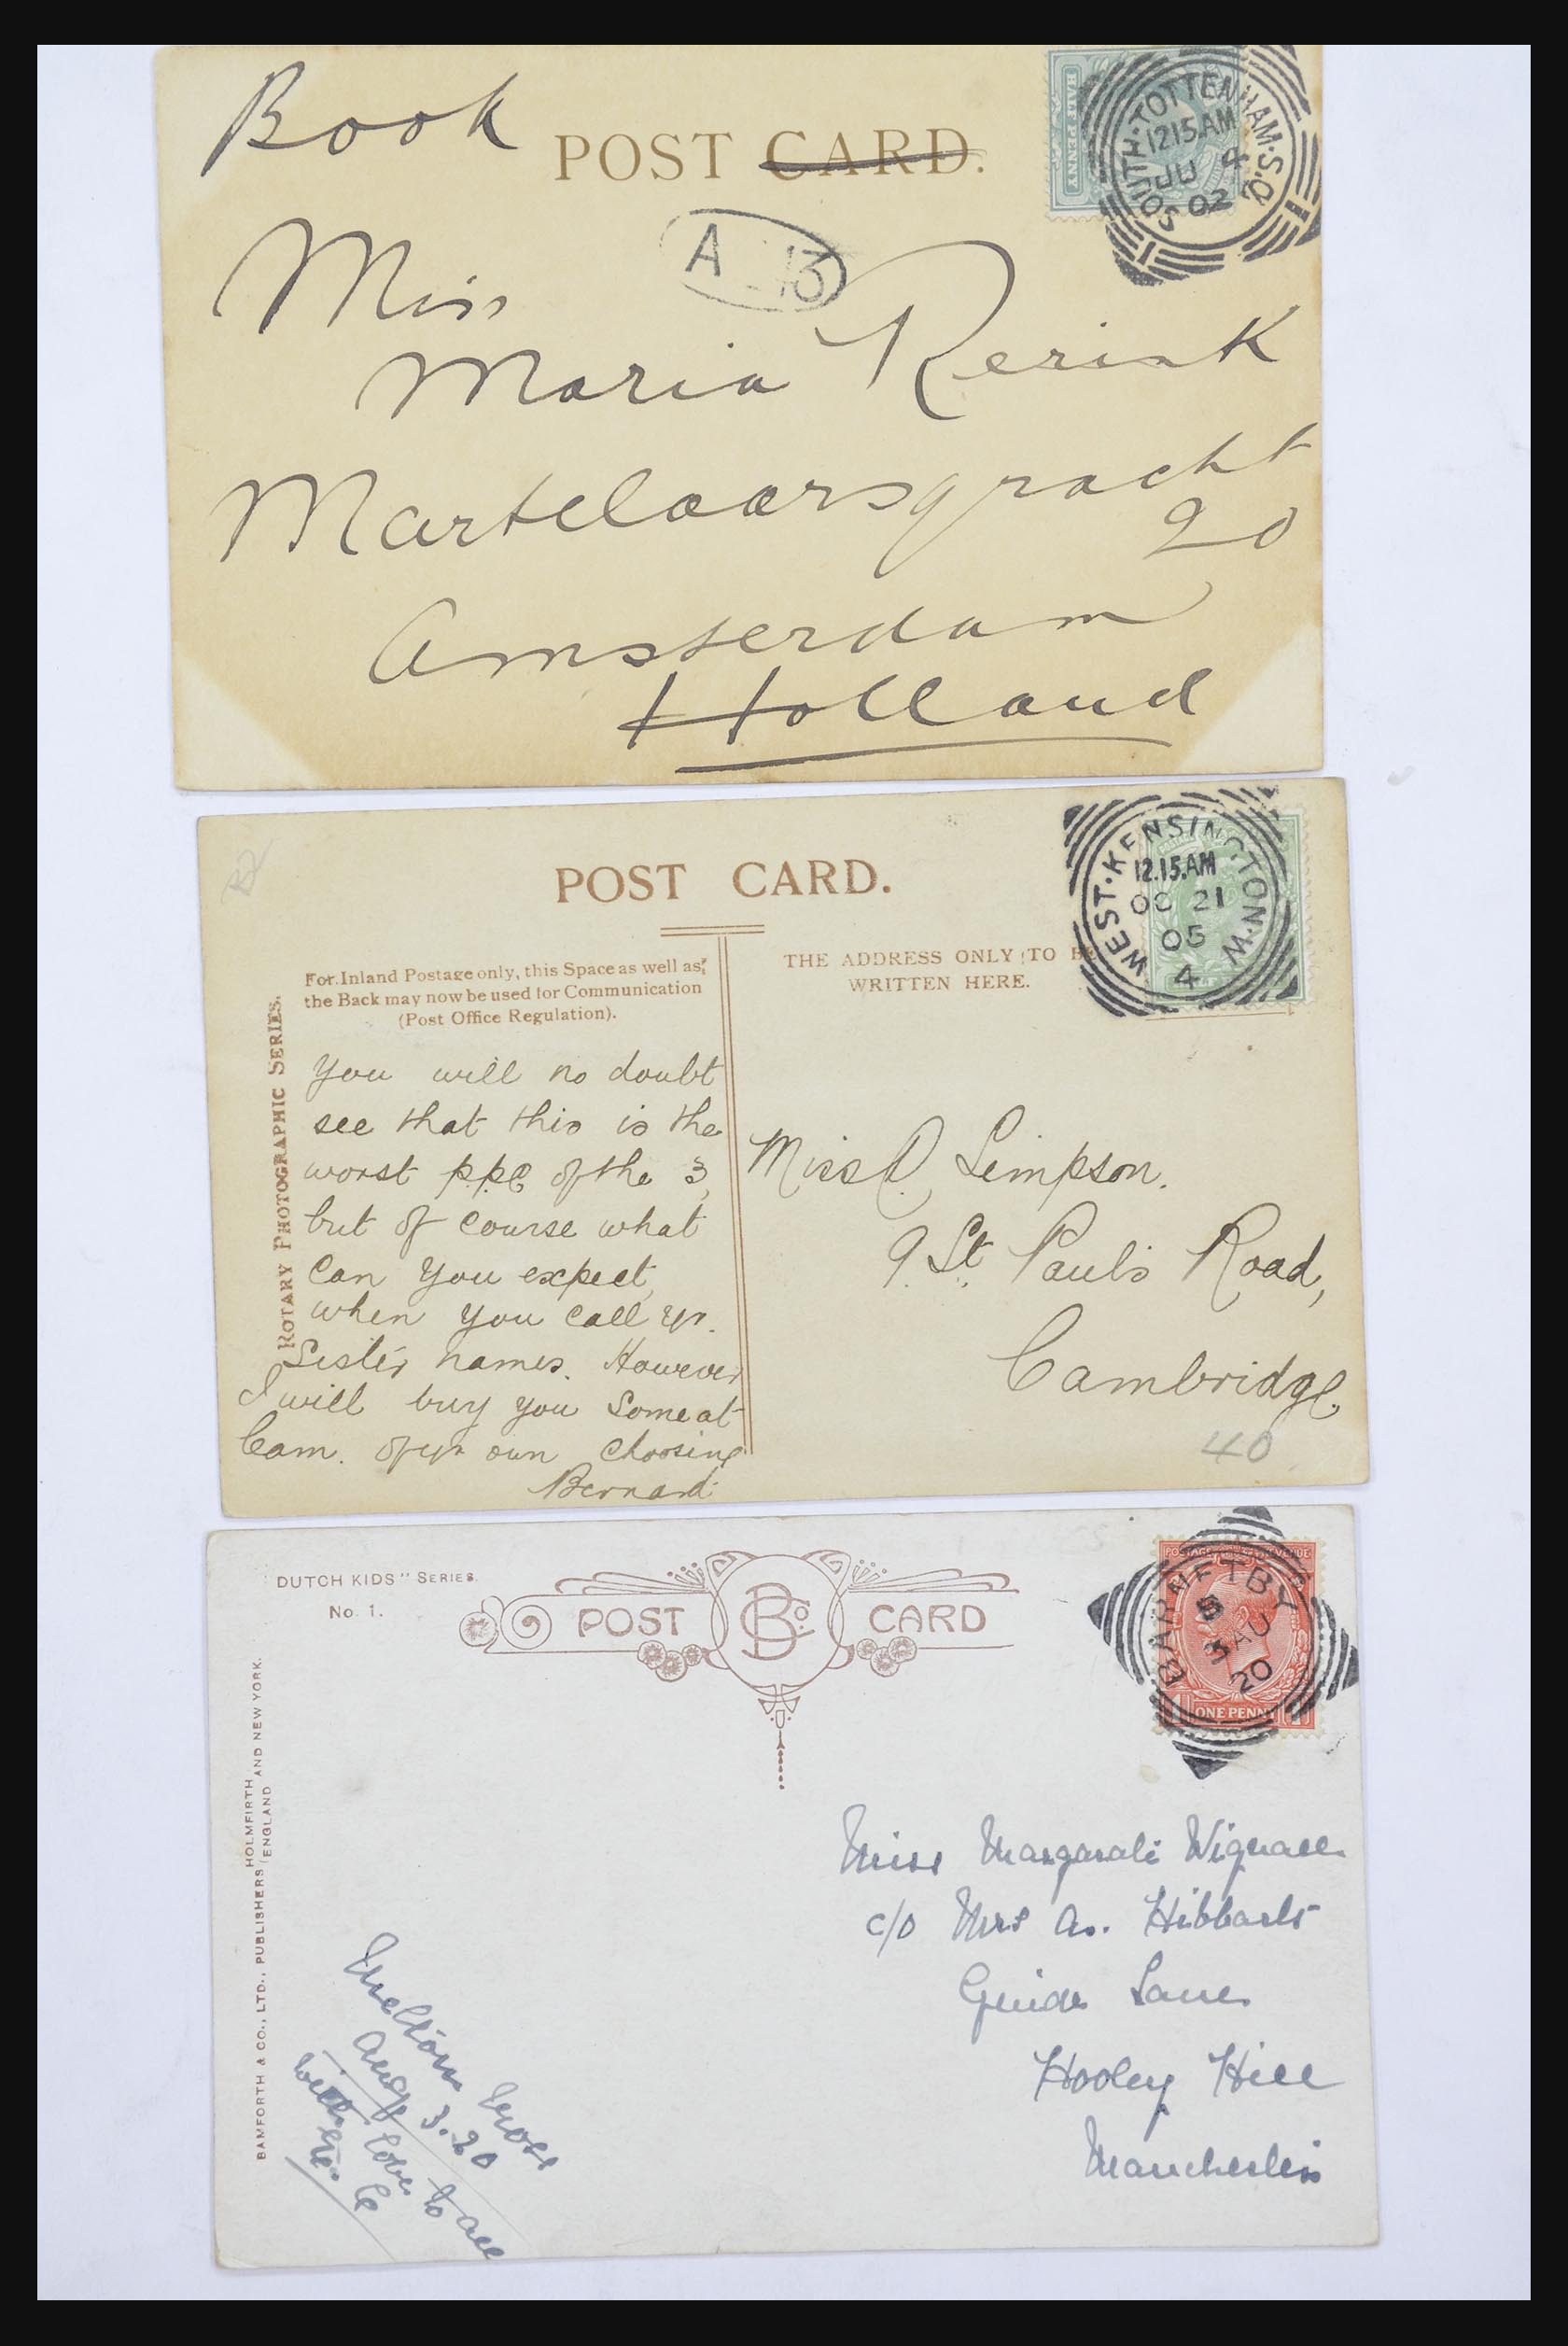 Book
POST CARD.
HALF PENNY
SOUTH·TOTTENHAM·S.O.
12.15.AM
JU 4
02
A 13
Miss
Maria Rerink
Martelaarsgracht
20
Amsterdam
Holland
POST CARD.
WEST·KENSINGTON·W
12.15.AM
OC 21
05
4
For Inland Postage only, this Space as well as
the Back may now be used for Communication
(Post Office Regulation).
THE ADDRESS ONLY TO BE
WRITTEN HERE.
ROTARY PHOTOGRAPHIC SERIES.
You will no doubt
see that this is the
worst p.p.c of the 3,
but of course what
can you expect,
when you call yr.
Sister names. However
I will buy you some at
Cam. of yr own choosing
Bernard
Miss Simpson.
9 St. Paul's Road,
Cambridge.
40
DUTCH KIDS" SERIES.
No. 1.
POST BCo. CARD
POSTAGE REVENUE
ONE PENNY
BARNETBY
AU
20
BAMFORTH & CO., LTD., PUBLISHERS HOLMFIRTH ENGLAND AND NEW YORK.
Miss Margaret Wignall
c/o Mrs A. Hibbert
Guide Lane
Hooley Hill
Manchester
Melton Ross
Aug 3.20
with love to all